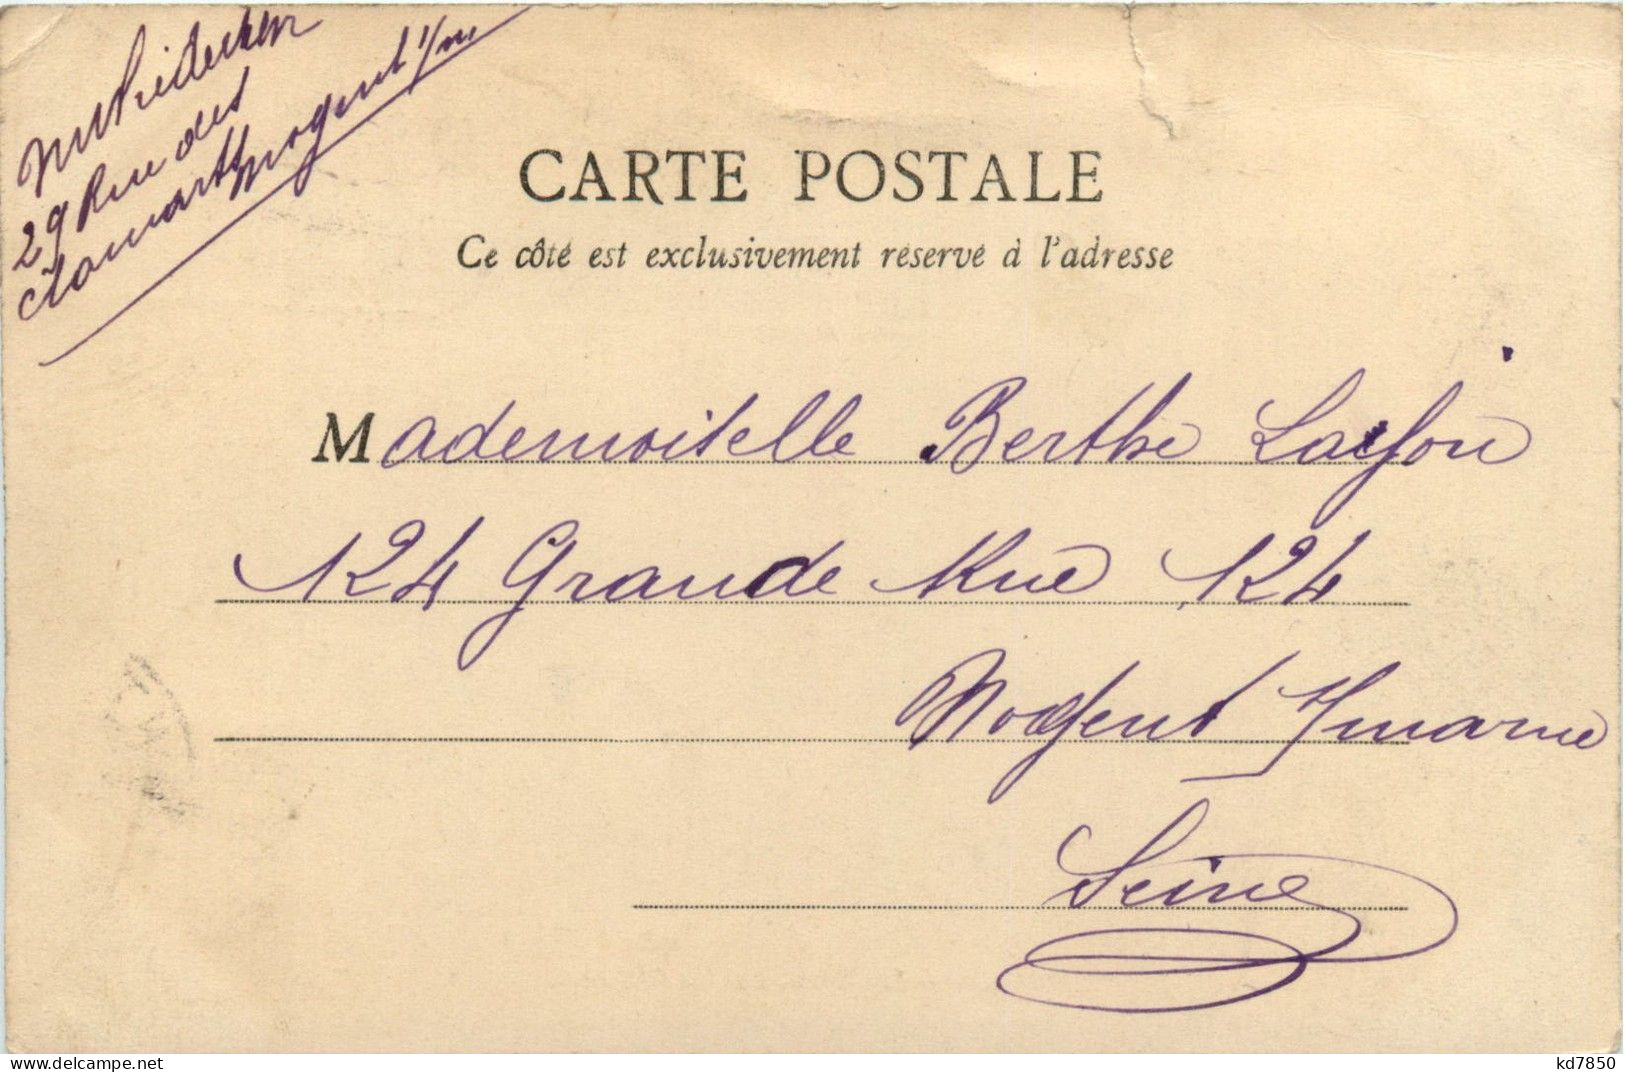 29 Rue des
Nogent s/m
CARTE POSTALE
Ce côté est exclusivement réservé à l'adresse
Mademoiselle Berthe Lafon
124 Grande Rue 124
Nogent s/marne
Seine
www.delcampe.net
kd7850